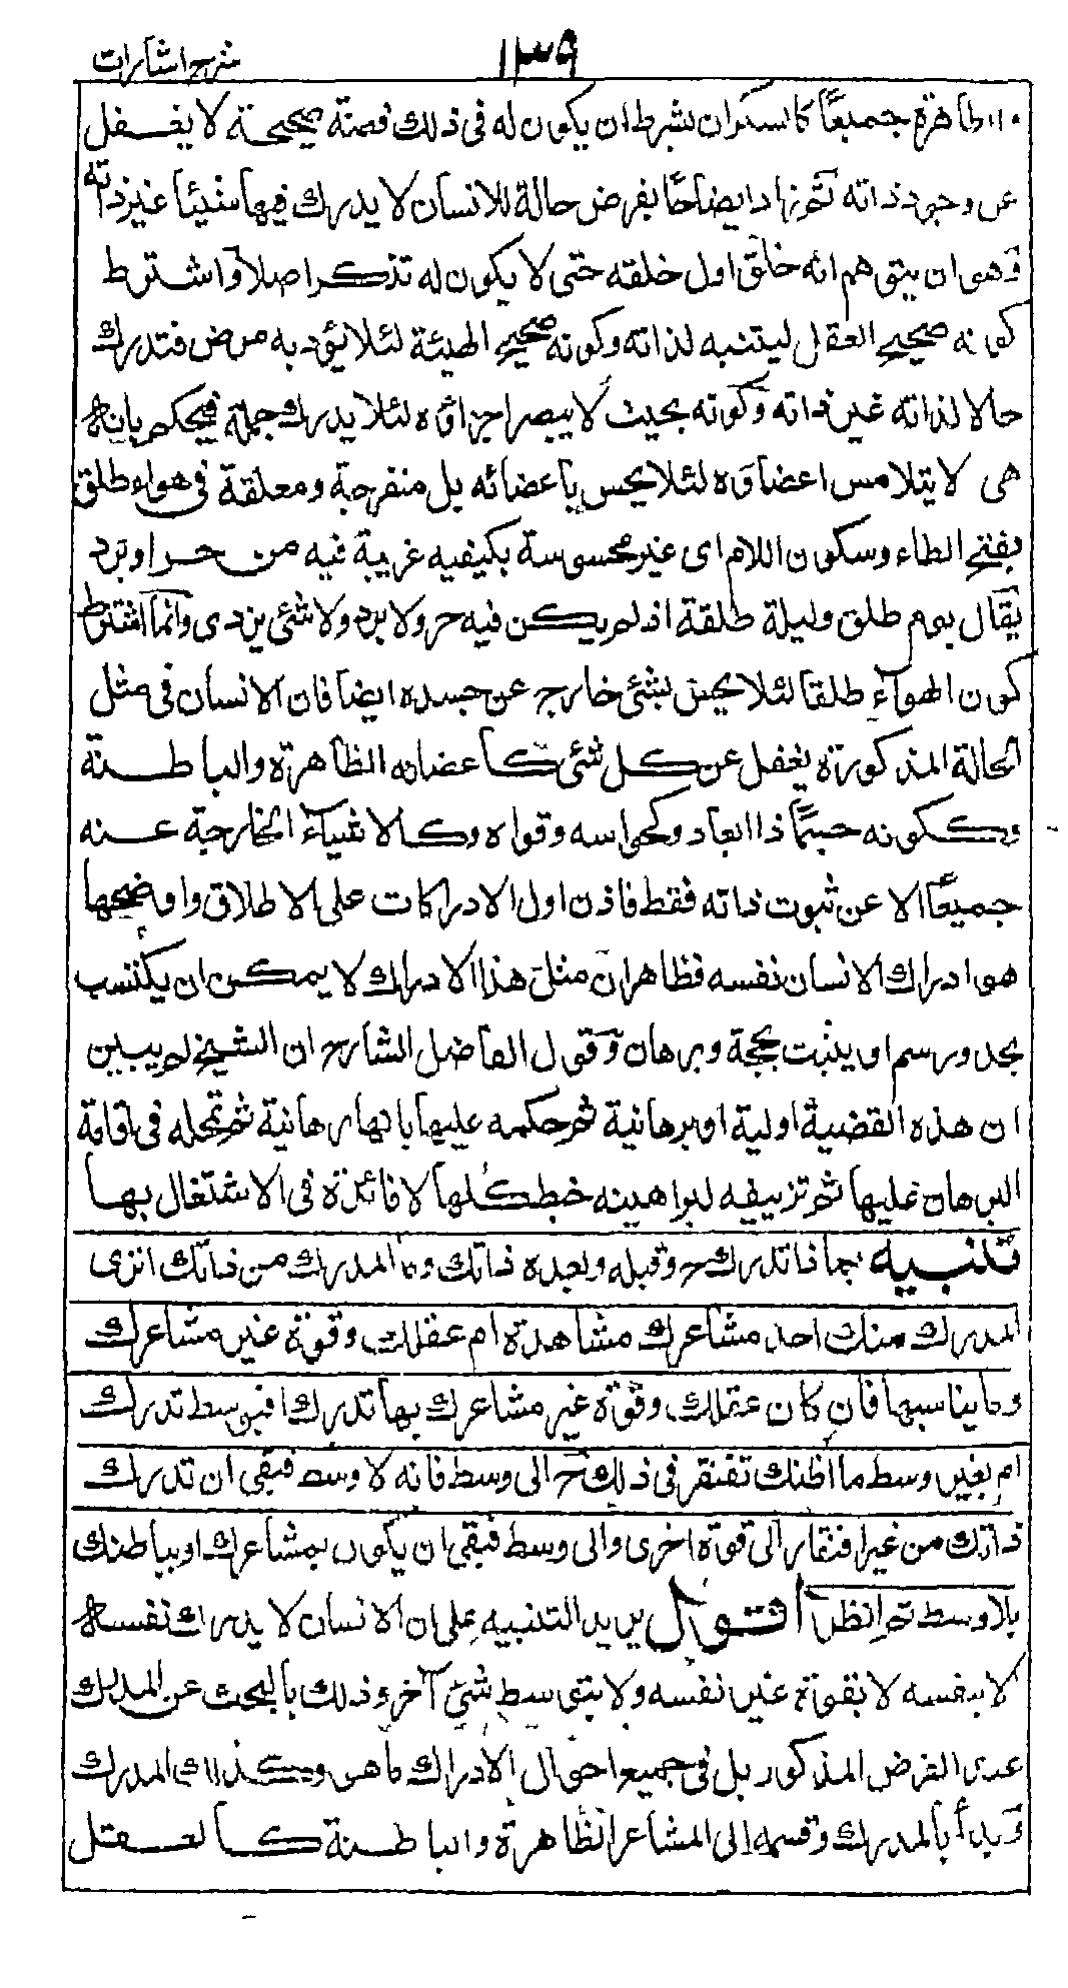 شرح اشارات
١٣٩
الظاهرة جميعًا كالسكران بشرط ان يكون له فى ذلك فطنة صحيحة لا يغفل
عن وجود ذاته ثم زاد ايضاحًا بفرض حالة للانسان لا يدرك فيها شيئًا غير ذاته
وهى ان يتوهم انه خلق اول خلقه حتى لا يكون له تذكر اصلا واشترط
كونه صحيح العقل ليتنبه لذاته وكونه صحيح الهيئة لئلا يؤذيه مرض فتدرك
حالا لذاته غير ذاته وكونه بحيث لا يبصر اجزاؤه لئلا يدرك جملة فيحكم بانه
هى لا يتلامس اعضاؤه لئلا يحس باعضائه بل منفرجة ومعلقة فى هواء طلق
بفتح الطاء وسكون اللام اى غير محسوسة بكيفيه غريبة فيه من حر او برد
يقال يوم طلق وليلة طلقة اذ لم يكن فيه حر ولا برد ولا شئ يزدى وانما اشترط
كون الهواء طلقا لئلا يحس بشئ خارج عن جسده ايضا فان الانسان فى مثل
الحالة المذكورة يغفل عن كل شئ كاعضائه الظاهرة والباطنة
وككونه جسمًا ذا ابعاد وكحواسه وقواه وكالاشياء الخارجة عنه
جميعًا الا عن ثبوت ذاته فقط فاذن اول الادراكات على الاطلاق واوضحها
هو ادراك الانسان نفسه فظاهر ان مثل هذا الادراك لا يمكن ان يكتسب
بحد ورسم او يثبت بحجة وبرهان وقول الفاضل الشارح ان الشيخ لم يبين
ان هذه القضية اولية او برهانية ثم حكمه عليها بانها برهانية ثم تمحله فى اقامة
البرهان عليها ثم تزييفه لبراهينه خبط كلها لا فائدة فى الاشتغال بها
تنبيه بماذا تدرك ح وقبله وبعده ذاتك وما المدرك من ذاتك اترى
المدرك منك احد مشاعرك مشاهدة ام عقلك وقوة غير مشاعرك
وما يناسبها فان كان عقلك وقوة غير مشاعرك بها تدرك افبوسط تدرك
ام بغير وسط ما اظنك تفتقر فى ذلك ح الى وسط فانه لا وسط فبقى ان تدرك
ذاتك من غير افتقار الى قوة اخرى والى وسط فبقى ان يكون بمشاعرك او بباطنك
بلا وسط ثم انظر اقول يريد التنبيه على ان الانسان لا يدرك نفسه
الا بنفسه لا بقوة غير نفسه ولا بتوسط شئ آخر وذلك بالبحث عن المدرك
عدى الفرض المذكور بل فى جميع احوال الادراك ما هو وكذلك المدرك
وبدأ بالمدرك وقسمه الى المشاعر الظاهرة والباطنة كالعقل